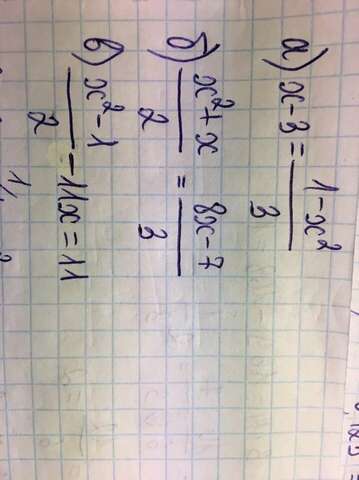 а) x - 3 = (1 - x²)/3
б) (x² + x)/2 = (8x - 7)/3
в) (x² - 1)/2 - 11x = 11